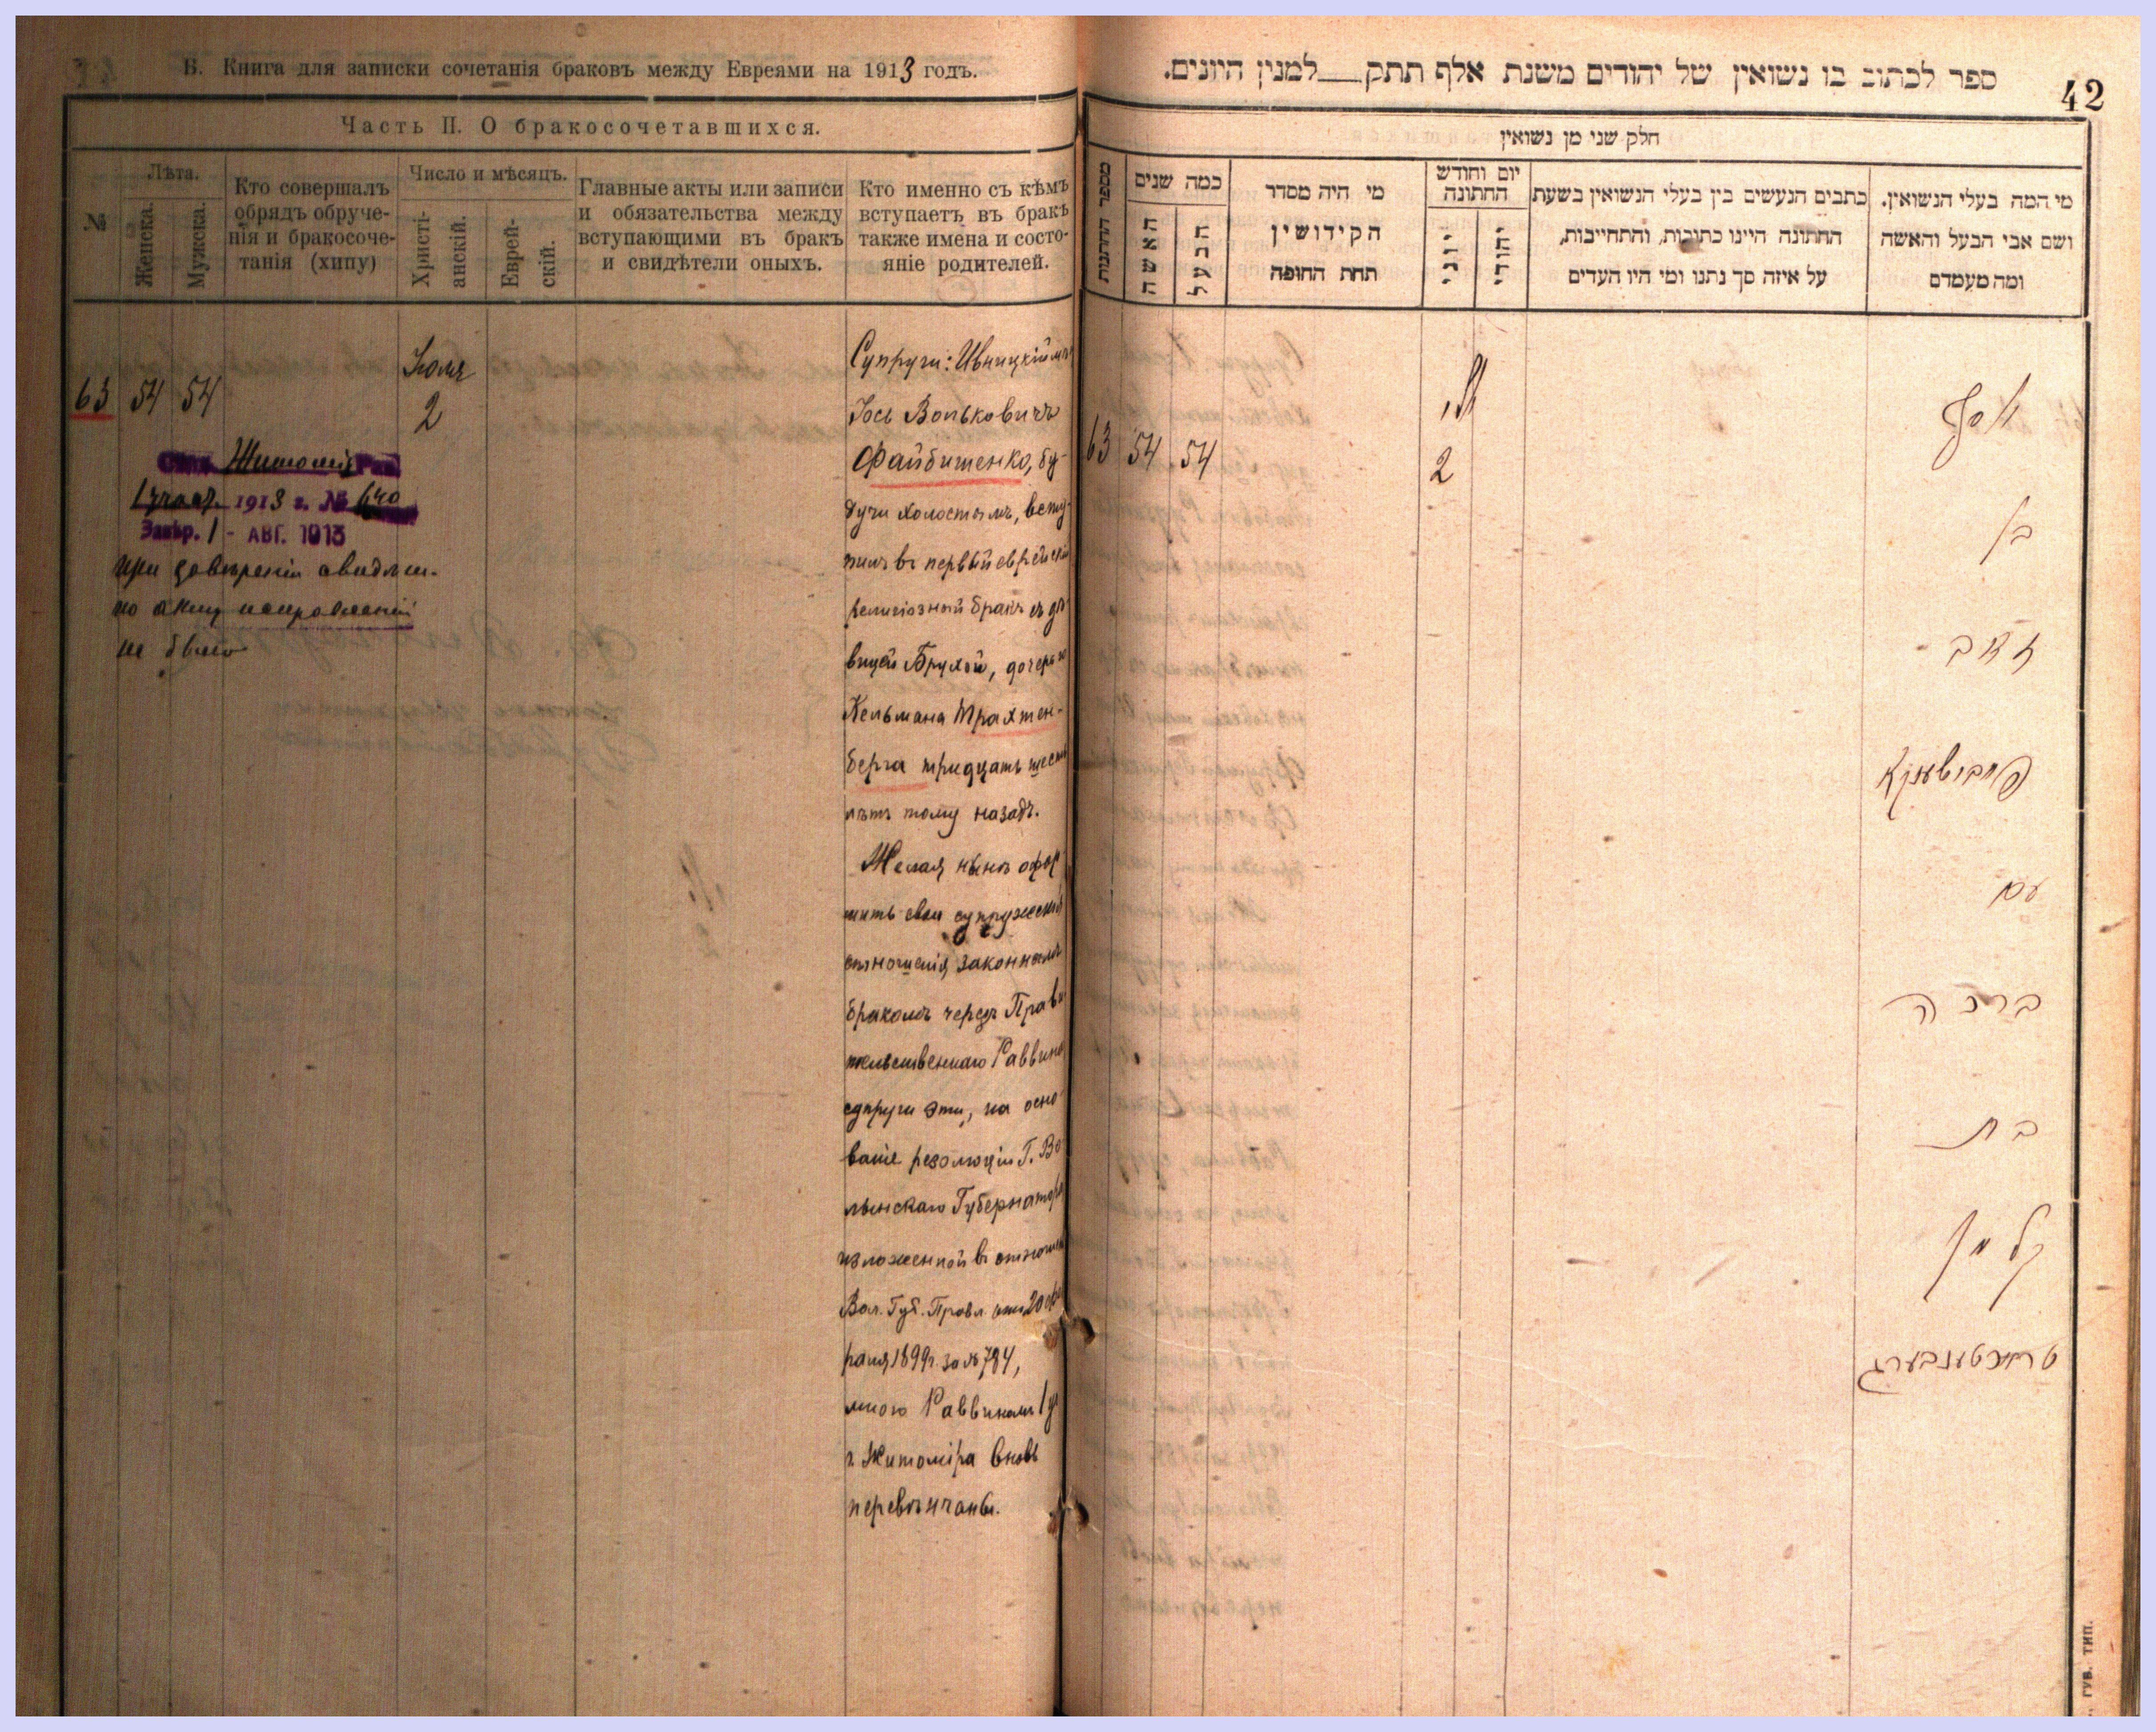 Б. Книга для записки сочетанія браковъ между Евреями на 1913 годъ.
Часть II. О бракосочетавшихся.
№
Лѣта.
Женска.
Мужска.
Кто совершалъ
обрядъ обруче-
нія и бракосоче-
танія (хипу)
Число и мѣсяцъ.
Христі-
анскій.
Еврей-
скій.
Главные акты или записи
и обязательства между
вступающими въ бракъ
и свидѣтели оныхъ.
Кто именно съ кѣмъ
вступаетъ въ бракъ
также имена и состо-
яніе родителей.
63 54 54
Іюля
2
Житомір
1913 г. № 640
Завѣр. 1 - АВГ. 1913
при завѣреніи
по акту исправленій
не было
Супруги: Ивницкій мѣщ
Іось Вольковичъ
Файбишенко, бу-
дучи холостымъ, всту-
пилъ въ первый еврейскій
религіозный бракъ съ дѣ-
вицей Брухой, дочерью
Кельмана Трахтен-
берга тридцать шесть
лѣтъ тому назадъ.
Желая нынѣ офор
мить свои супружескія
отношенія законнымъ
бракомъ черезъ Прави
тельственнаго Раввина
супруги эти, на осно
ваніе резолюціи Г. Во
лынскаго Губернатора
изложенной въ отношен
Вол. Губ. Правл. отъ 20 фев
раля 1899 г. за № 784,
мною Раввиномъ 1 уч
г. Житоміра вновь
перевѣнчаны.
ספר לכתוב בו נשואין של יהודים משנת אלף תתק__למנין היונים.
42
חלק שני מן נשואין
מספר החתנות
כמה שנים
האשה
הבעל
מי היה מסדר
הקידושין
תחת החופה
יום וחודש
החתונה
יוני
יהודי
כתבים הנעשים בין בעלי הנשואין בשעת
החתונה היינו כתובות, והתחייבות,
על איזה סך נתנו ומי היו העדים
מי המה בעלי הנשואין.
ושם אבי הבעל והאשה
ומה מעמדם
63 54 54
2
יוסף
בן
זאב
פייבישענקא
עם
ברכה
בת
קלמן
טראכטענבערג
ГУБ. ТИП.